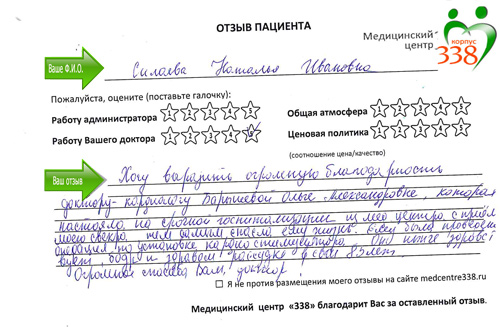 ОТЗЫВ ПАЦИЕНТА
Медицинский центр
корпус 338
Ваше Ф.И.О.
Силаева Наталья Ивановна
Пожалуйста, оцените (поставьте галочку):
Работу администратора 1 2 3 4 5
Общая атмосфера 1 2 3 4 5
Работу Вашего доктора 1 2 3 4 5
Ценовая политика 1 2 3 4 5
(соотношение цена/качество)
Ваш отзыв
Хочу выразить огромную благодарность
доктору-кардиологу Барышевой Ольге Александровне, которая
настояла на срочной госпитализации из мед центра с приёма
моего свекра, тем самым спасла ему жизнь. Ему была проведена
операция по установке кардиостимулятора. Он ныне здравс
вует, бодр и здравом рассудке в свои 83 лет.
Огромное спасибо Вам, доктор!
Я не против размещения моего отзывы на сайте medcentre338.ru
Медицинский центр «338» благодарит Вас за оставленный отзыв.